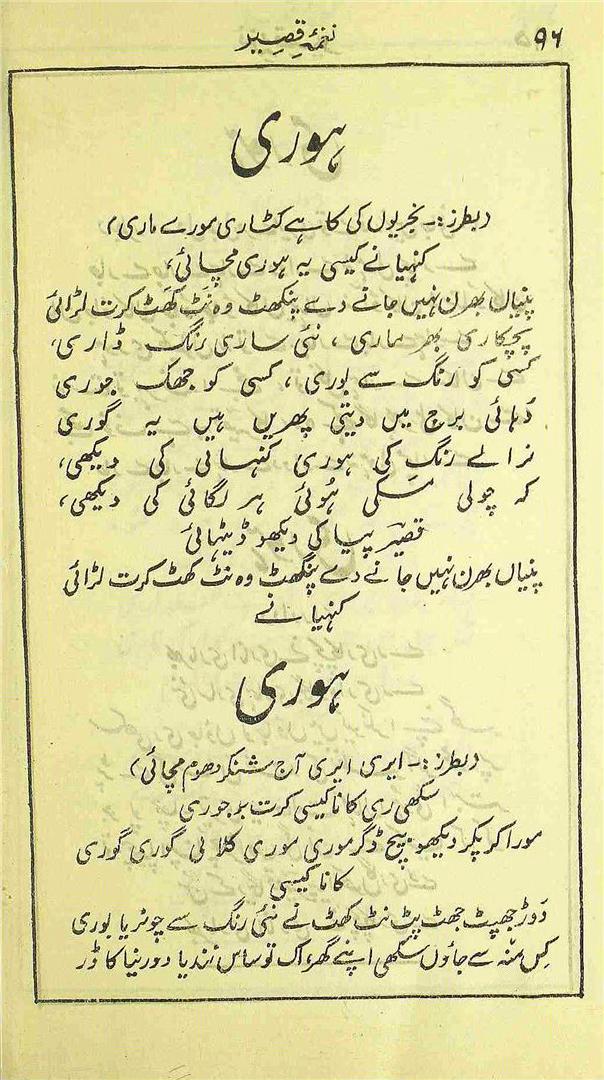 ۹۶
نغمۂ قصیر
ہوری
(بطرز:۔ نجریوں کی کاہے کٹاری مورے ماری)
کنہیا نے کیسی یہ ہوری مچائی،
پنیاں بھرن نہیں جانے دے پنگھٹ وہ نٹ کھٹ کرت لڑائی
پچکاری بھر ماری، نئی ساری رنگ ڈاری،
کسی کو رنگ سے بوری، کسی کو جھک جوری
دُہائی برج میں دیتی پھریں ہیں یہ گوری
نرالے رنگ کی ہوری کنہائی کی دیکھی،
کہ چولی مسکی ہُوئی ہر لگائی کی دیکھی،
قصیرؔ پیا کی دیکھو ڈیٹہائی
پنیاں بھرن نہیں جانے دے پنگھٹ وہ نٹ کھٹ کرت لڑائی
کنہیا نے
ہوری
(بطرز:۔ ایری ایری آج شنکر دھوم مچائی)
سکھی ری کانا کیسی کرت بوجوری
مورا کر پکر دیکھو بیچ ڈگر موری موری کلائی گوری گوری
کانا کیسی
دَوڑ جھپٹ جھٹ پٹ نٹ کھٹ نے نئی رنگ سے چونریا بوری
کِس منّہ سے جاؤں سکھی اپنے گھر، اک تو ساس نندیا دور نیا کا ڈر